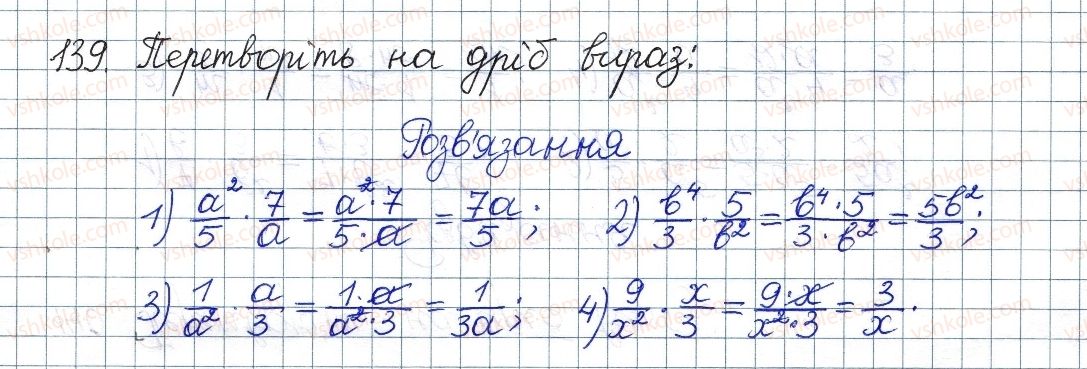 139. Перетворіть на дріб вираз:
Розв'язання
1) a²/5 · 7/a = a²·7/5·a = 7a/5; 2) b⁴/3 · 5/b² = b⁴·5/3·b² = 5b²/3;
3) 1/a² · a/3 = 1·a/a²·3 = 1/3a; 4) 9/x² · x/3 = 9·x/x²·3 = 3/x.